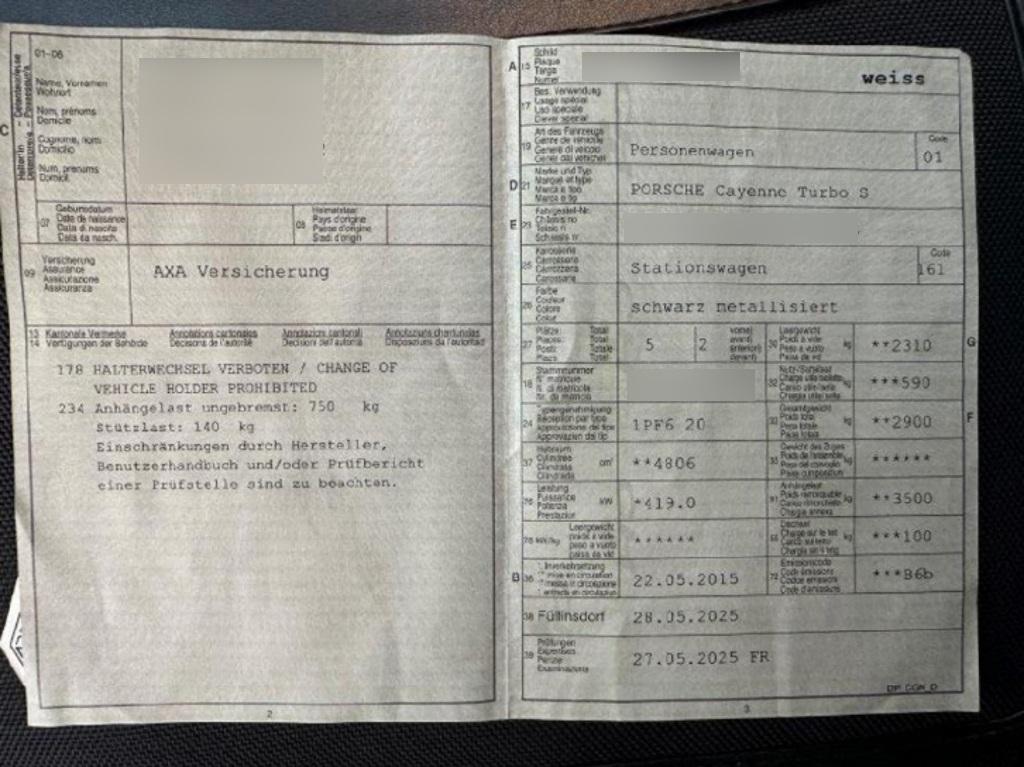 01-06
C
Name, Vornamen
Wohnort
Nom, prénoms
Domicile
Cognome, nomi
Domicilio
Num, prenums
Domicil
07
Geburtsdatum
Date de naissance
Data di nascita
Data da nasch.
08
Heimatstaat
Pays d'origine
Paese d'origine
Stadi d'origin
09
Versicherung
Assurance
Assicurazione
Assicuranza
AXA Versicherung
13 Kantonale Vermerke Annotations cantonales Annotazioni cantonali Annotaziuns chantunalas
14 Verfügungen der Behörde Décisions de l'autorité Decisioni dell'autorità Disposiziuns da l'autoritad
178 HALTERWECHSEL VERBOTEN / CHANGE OF
VEHICLE HOLDER PROHIBITED
234 Anhängelast ungebremst: 750 kg
Stützlast: 140 kg
Einschränkungen durch Hersteller,
Benutzerhandbuch und/oder Prüfbericht
einer Prüfstelle sind zu beachten.
2
A 15
Schild
Plaque
Targa
Numer
weiss
17
Bes. Verwendung
Usage spécial
Uso speciale
Diever spezial
19
Art des Fahrzeugs
Genre de véhicule
Genere di veicolo
Gener dal vehichel
Personenwagen
Code
01
D 21
Marke und Typ
Marque et type
Marca e tipo
Marca e tip
PORSCHE Cayenne Turbo S
E 23
Fahrgestell-Nr.
Châssis no
Telaio n.
Schassis nr.
25
Karosserie
Carrosserie
Carrozzeria
Carossaria
Stationswagen
Code
161
26
Farbe
Couleur
Colore
Colur
schwarz metallisiert
27
Plätze: Total
Places: Total
Posti: Totale
Plazs: Total
5
2
vorne
avant
anteriori
davant
30
Leergewicht
Poids à vide
Peso a vuoto
Paisa da vid
kg
**2310
G
18
Stammnummer
N° matricule
N. di matricola
Nr. da matricla
32
Nutz-/Sattellast
kg
***590
24
Typengenehmigung
Réception par type
Approvazione del tipo
Approvaziun dal tip
1PF6 20
33
Gesamtgewicht
Poids total
Peso totale
Paisa totala
kg
**2900
F
37
Hubraum
Cylindrée
Cilindrata
Cilindrada
cm³
**4806
35
Gewicht des Zuges
kg
******
76
Leistung
Puissance
Potenza
Prestaziun
kW
*419.0
31
Anhängelast
Poids remorquable
kg
**3500
78 kW/kg
Leergewicht
poids à vide
peso a vuoto
paisa da vid
******
55
Dachlast
kg
***100
B 36
1. Inverkehrsetzung
22.05.2015
72
Emissionscode
Code émissions
Codice emissioni
Code d'emissiuns
***B6b
38 Füllinsdorf
28.05.2025
39
Prüfungen
Expertises
Perizie
Examinaziuns
27.05.2025 FR
3